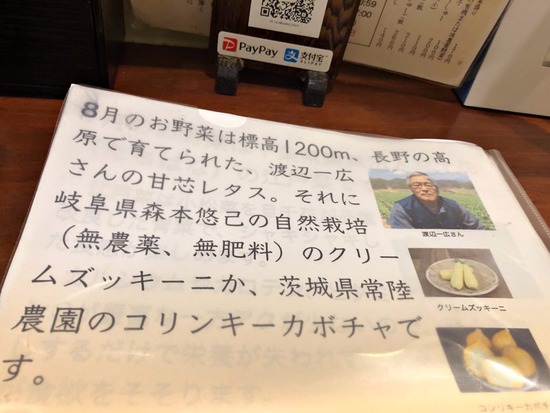 PayPay
支付宝
ALIPAY
8月のお野菜は標高1200m、長野の高
原で育てられた、渡辺一広
さんの甘芯レタス。それに
岐阜県森本悠己の自然栽培
（無農薬、無肥料）のクリー
ムズッキーニか、茨城県常陸
農園のコリンキーカボチャで
す。
渡辺一広さん
クリームズッキーニ